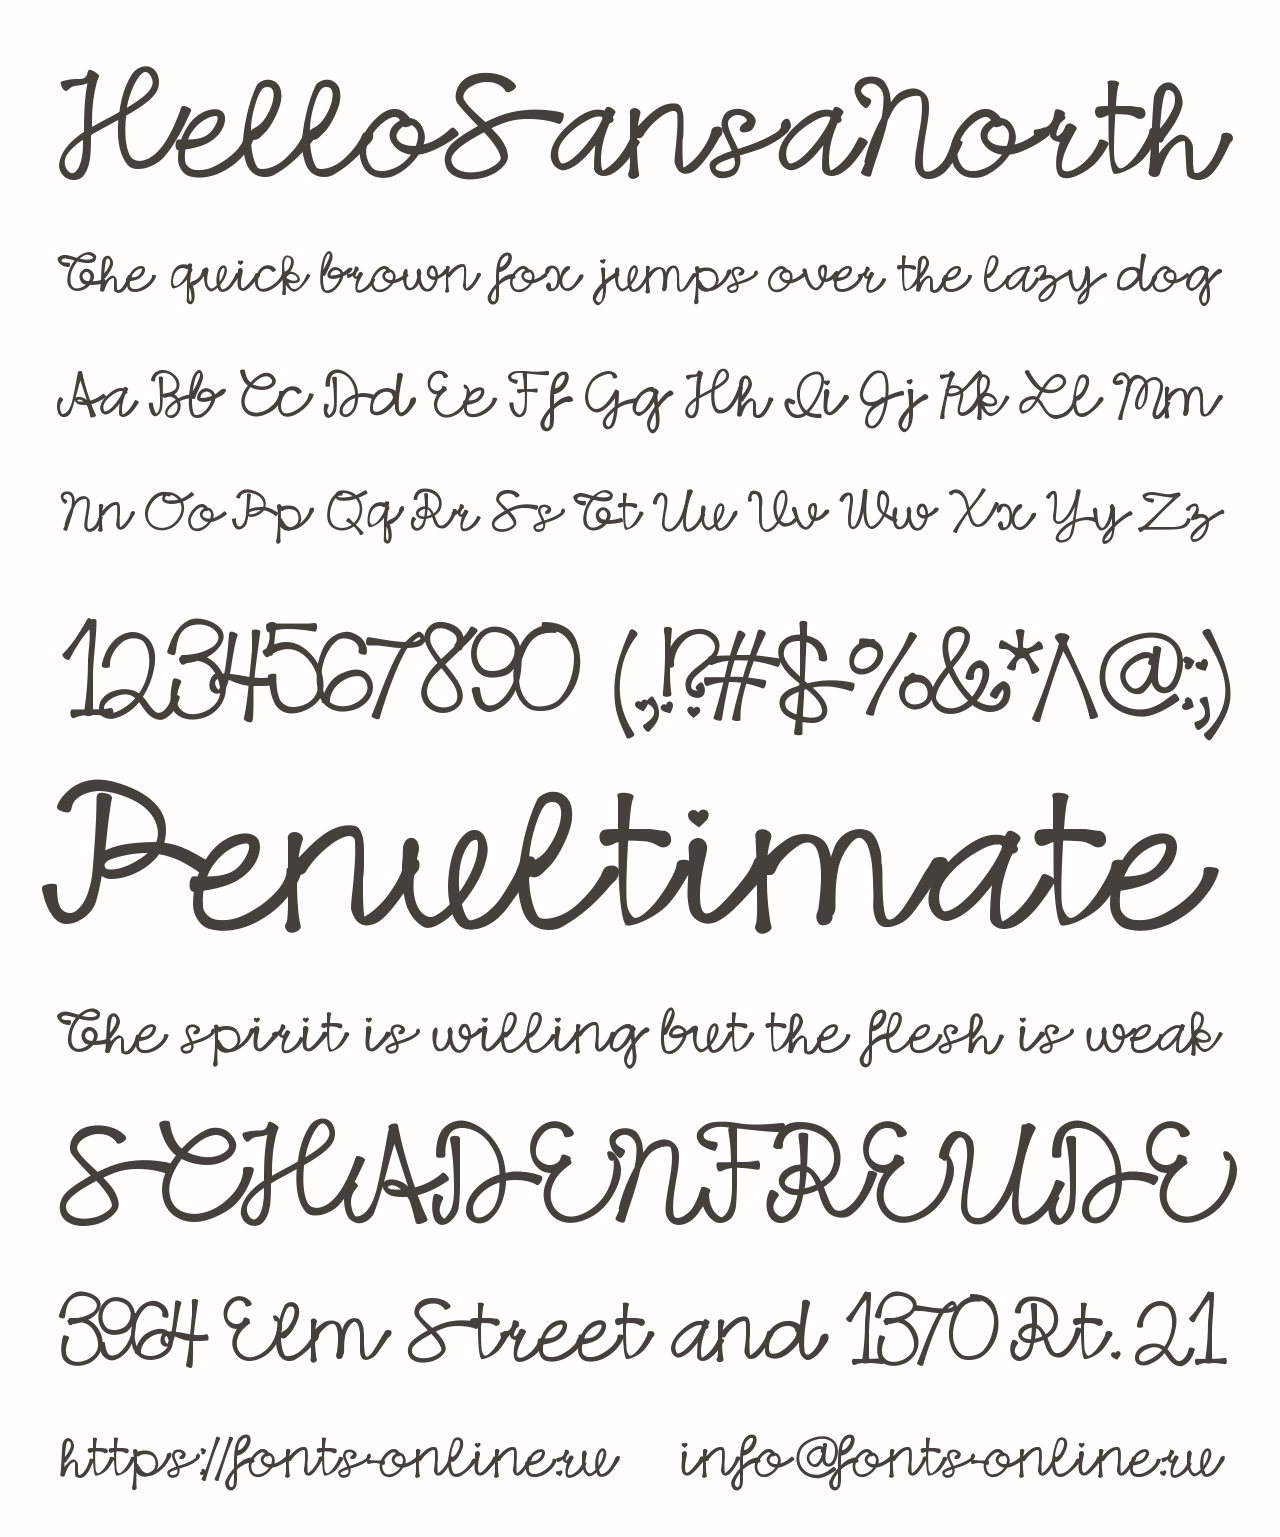 HelloSansaNorth
The quick brown fox jumps over the lazy dog
Aa Bb Cc Dd Ee Ff Gg Hh Ii Jj Kk Ll Mm
Nn Oo Pp Qq Rr Ss Tt Uu Vv Ww Xx Yy Zz
1234567890 (,.!?#$%&*^@:;)
Penultimate
The spirit is willing but the flesh is weak
SCHADENFREUDE
3964 Elm Street and 1370 Rt. 21
https://fonts-online.ru info@fonts-online.ru